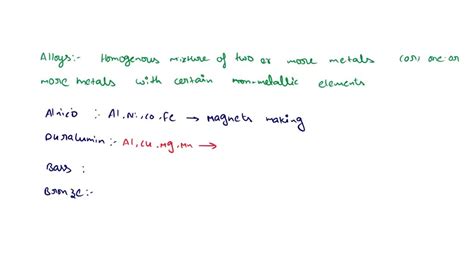 Alloys:- Homogenous mixture of two or more metals (or) one or
more metals with certain non-metallic elements
Alnico : Al, Ni, Co, Fe → Magnets making
Duralumin :- Al, Cu, Mg, Mn →
Bass :
Bronze:-